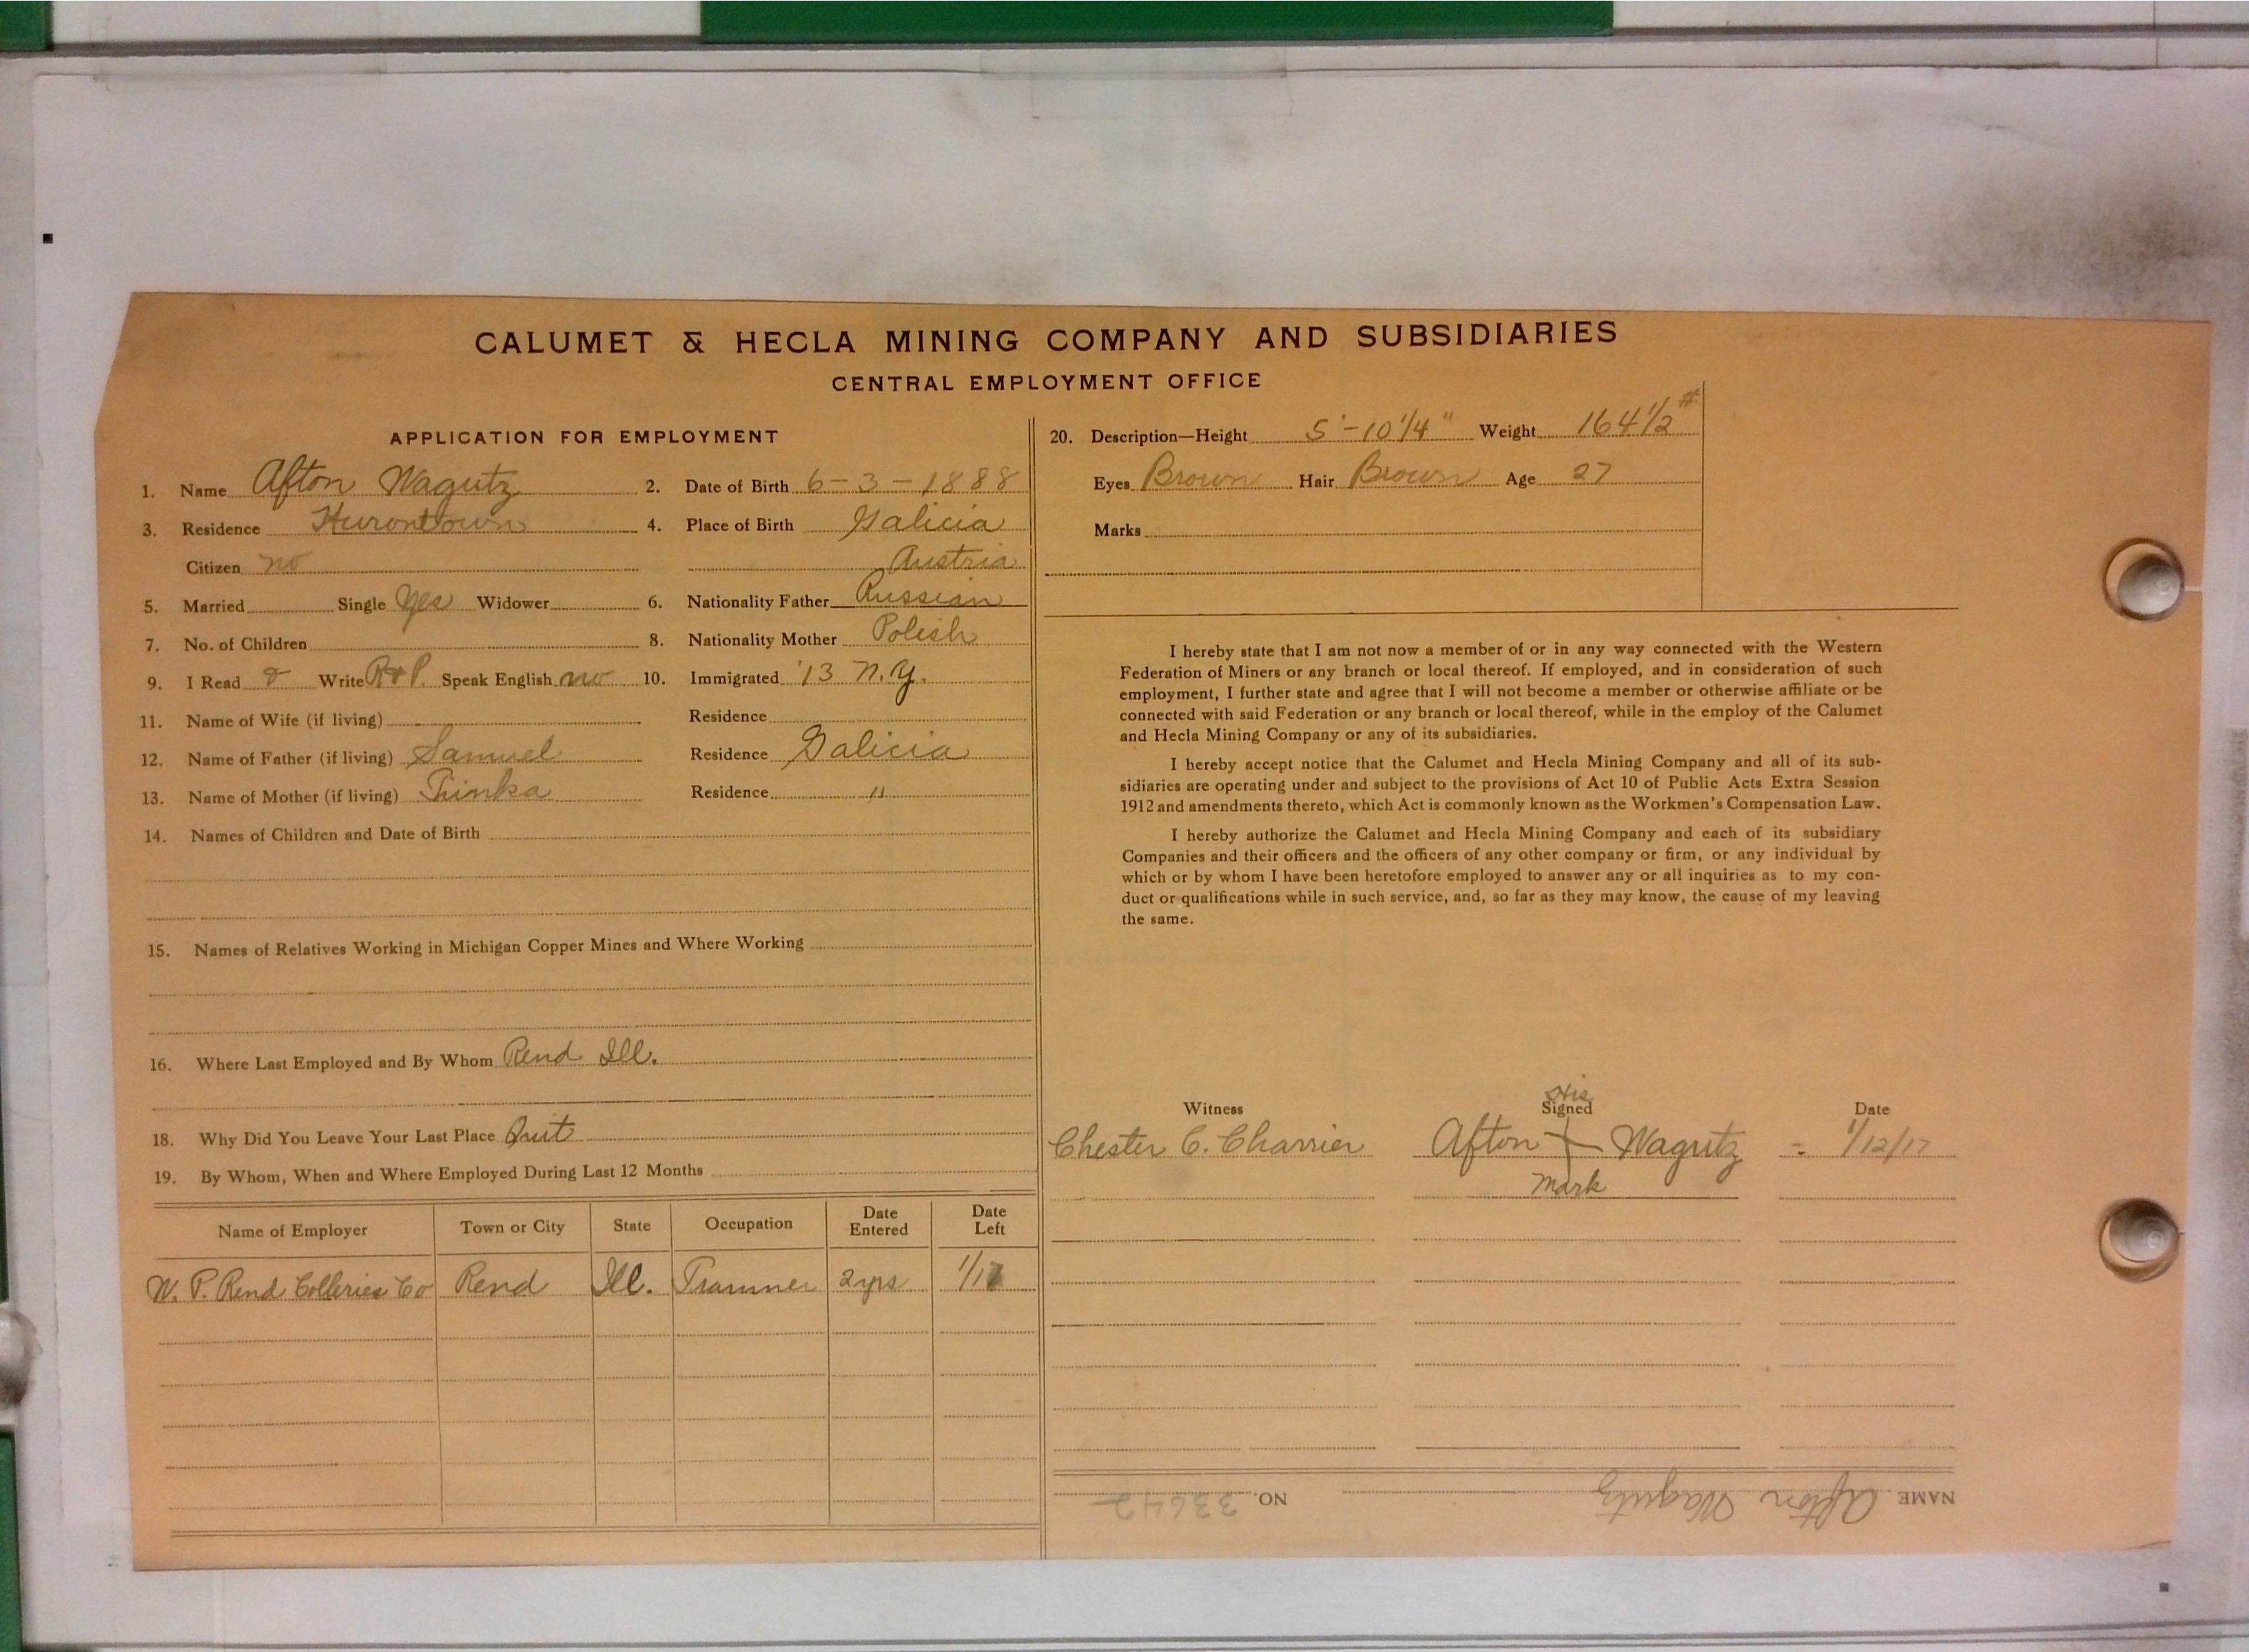 CALUMET & HECLA MINING COMPANY AND SUBSIDIARIES
CENTRAL EMPLOYMENT OFFICE
APPLICATION FOR EMPLOYMENT
1. Name Afton Wagutz 2. Date of Birth 6-3-1888
3. Residence Hurontown 4. Place of Birth Galicia
Citizen no Austria
5. Married Single Yes Widower 6. Nationality Father Russian
7. No. of Children 8. Nationality Mother Polish
9. I Read & Write R & P. Speak English no 10. Immigrated '13 N.Y.
11. Name of Wife (if living) Residence
12. Name of Father (if living) Samuel Residence Galicia
13. Name of Mother (if living) Residence "
14. Names of Children and Date of Birth
15. Names of Relatives Working in Michigan Copper Mines and Where Working
16. Where Last Employed and By Whom Rend Ill.
18. Why Did You Leave Your Last Place Quit
19. By Whom, When and Where Employed During Last 12 Months
Name of Employer Town or City State Occupation Date Entered Date Left
W. P. Rend Colleries Co Rend Ill. Trammer 2 yrs 1/17
20. Description—Height 5'-10 1/4" Weight 164 1/2 #
Eyes Brown Hair Brown Age 27
Marks
I hereby state that I am not now a member of or in any way connected with the Western
Federation of Miners or any branch or local thereof. If employed, and in consideration of such
employment, I further state and agree that I will not become a member or otherwise affiliate or be
connected with said Federation or any branch or local thereof, while in the employ of the Calumet
and Hecla Mining Company or any of its subsidiaries.
I hereby accept notice that the Calumet and Hecla Mining Company and all of its sub-
sidiaries are operating under and subject to the provisions of Act 10 of Public Acts Extra Session
1912 and amendments thereto, which Act is commonly known as the Workmen's Compensation Law.
I hereby authorize the Calumet and Hecla Mining Company and each of its subsidiary
Companies and their officers and the officers of any other company or firm, or any individual by
which or by whom I have been heretofore employed to answer any or all inquiries as to my con-
duct or qualifications while in such service, and, so far as they may know, the cause of my leaving
the same.
His
Witness Signed Date
Chester C. Charrier Afton Wagutz - 1/12/17
Mark
NAME Afton Wagutz NO. 33642